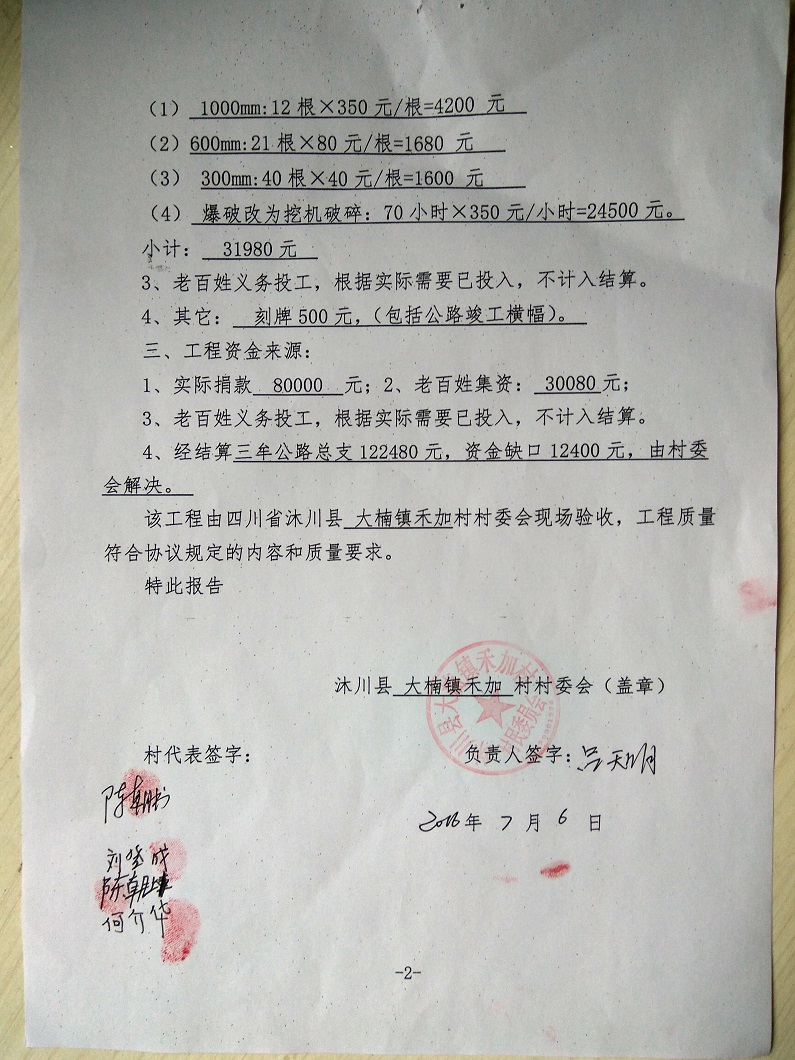 （1） 1000mm:12 根×350 元/根=4200 元
（2）600mm:21 根×80 元/根=1680 元
（3） 300mm:40 根×40 元/根=1600 元
（4） 爆破改为挖机破碎：70 小时×350 元/小时=24500 元。
小计： 31980 元
3、老百姓义务投工，根据实际需要已投入，不计入结算。
4、其它： 刻牌 500 元，（包括公路竣工横幅）。
三、工程资金来源：
1、实际捐款 80000 元；2、老百姓集资： 30080 元；
3、老百姓义务投工，根据实际需要已投入，不计入结算。
4、经结算三牟公路总支 122480 元，资金缺口 12400 元，由村委
会解决。
该工程由四川省沐川县 大楠镇禾加村村委会现场验收，工程质量
符合协议规定的内容和质量要求。
特此报告
沐川县 大楠镇禾加 村村委会（盖章）
村代表签字： 负责人签字：吕天明
2016年 7 月 6 日
陈朝
刘 成
陈朝
何介华
-2-